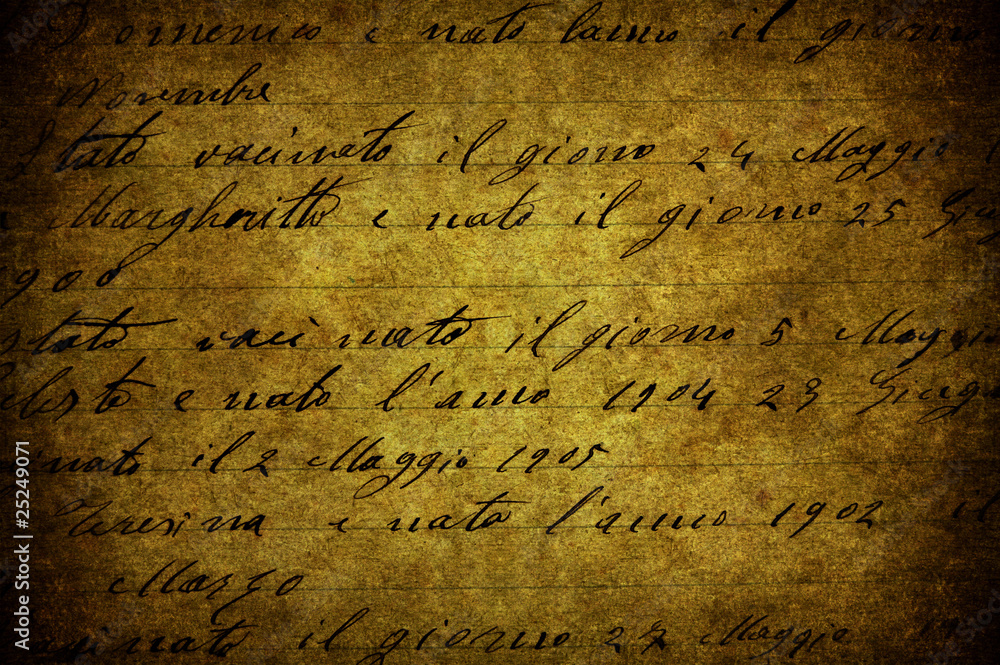 Domenico e nato lanno il giorno
Novembre
Stato vacinato il giorno 24 Maggio
Margheritta e nato il giorno 25 Giug
900
stato vaci nato il giorno 5 Maggio
eleste e nato l'anno 1904 23 Giugno
inato il 2 Maggio 1905
Teresina e nata l'anno 1902 il
Marzo
acinato il giorno 27 Maggio 19
Adobe Stock | #25249071